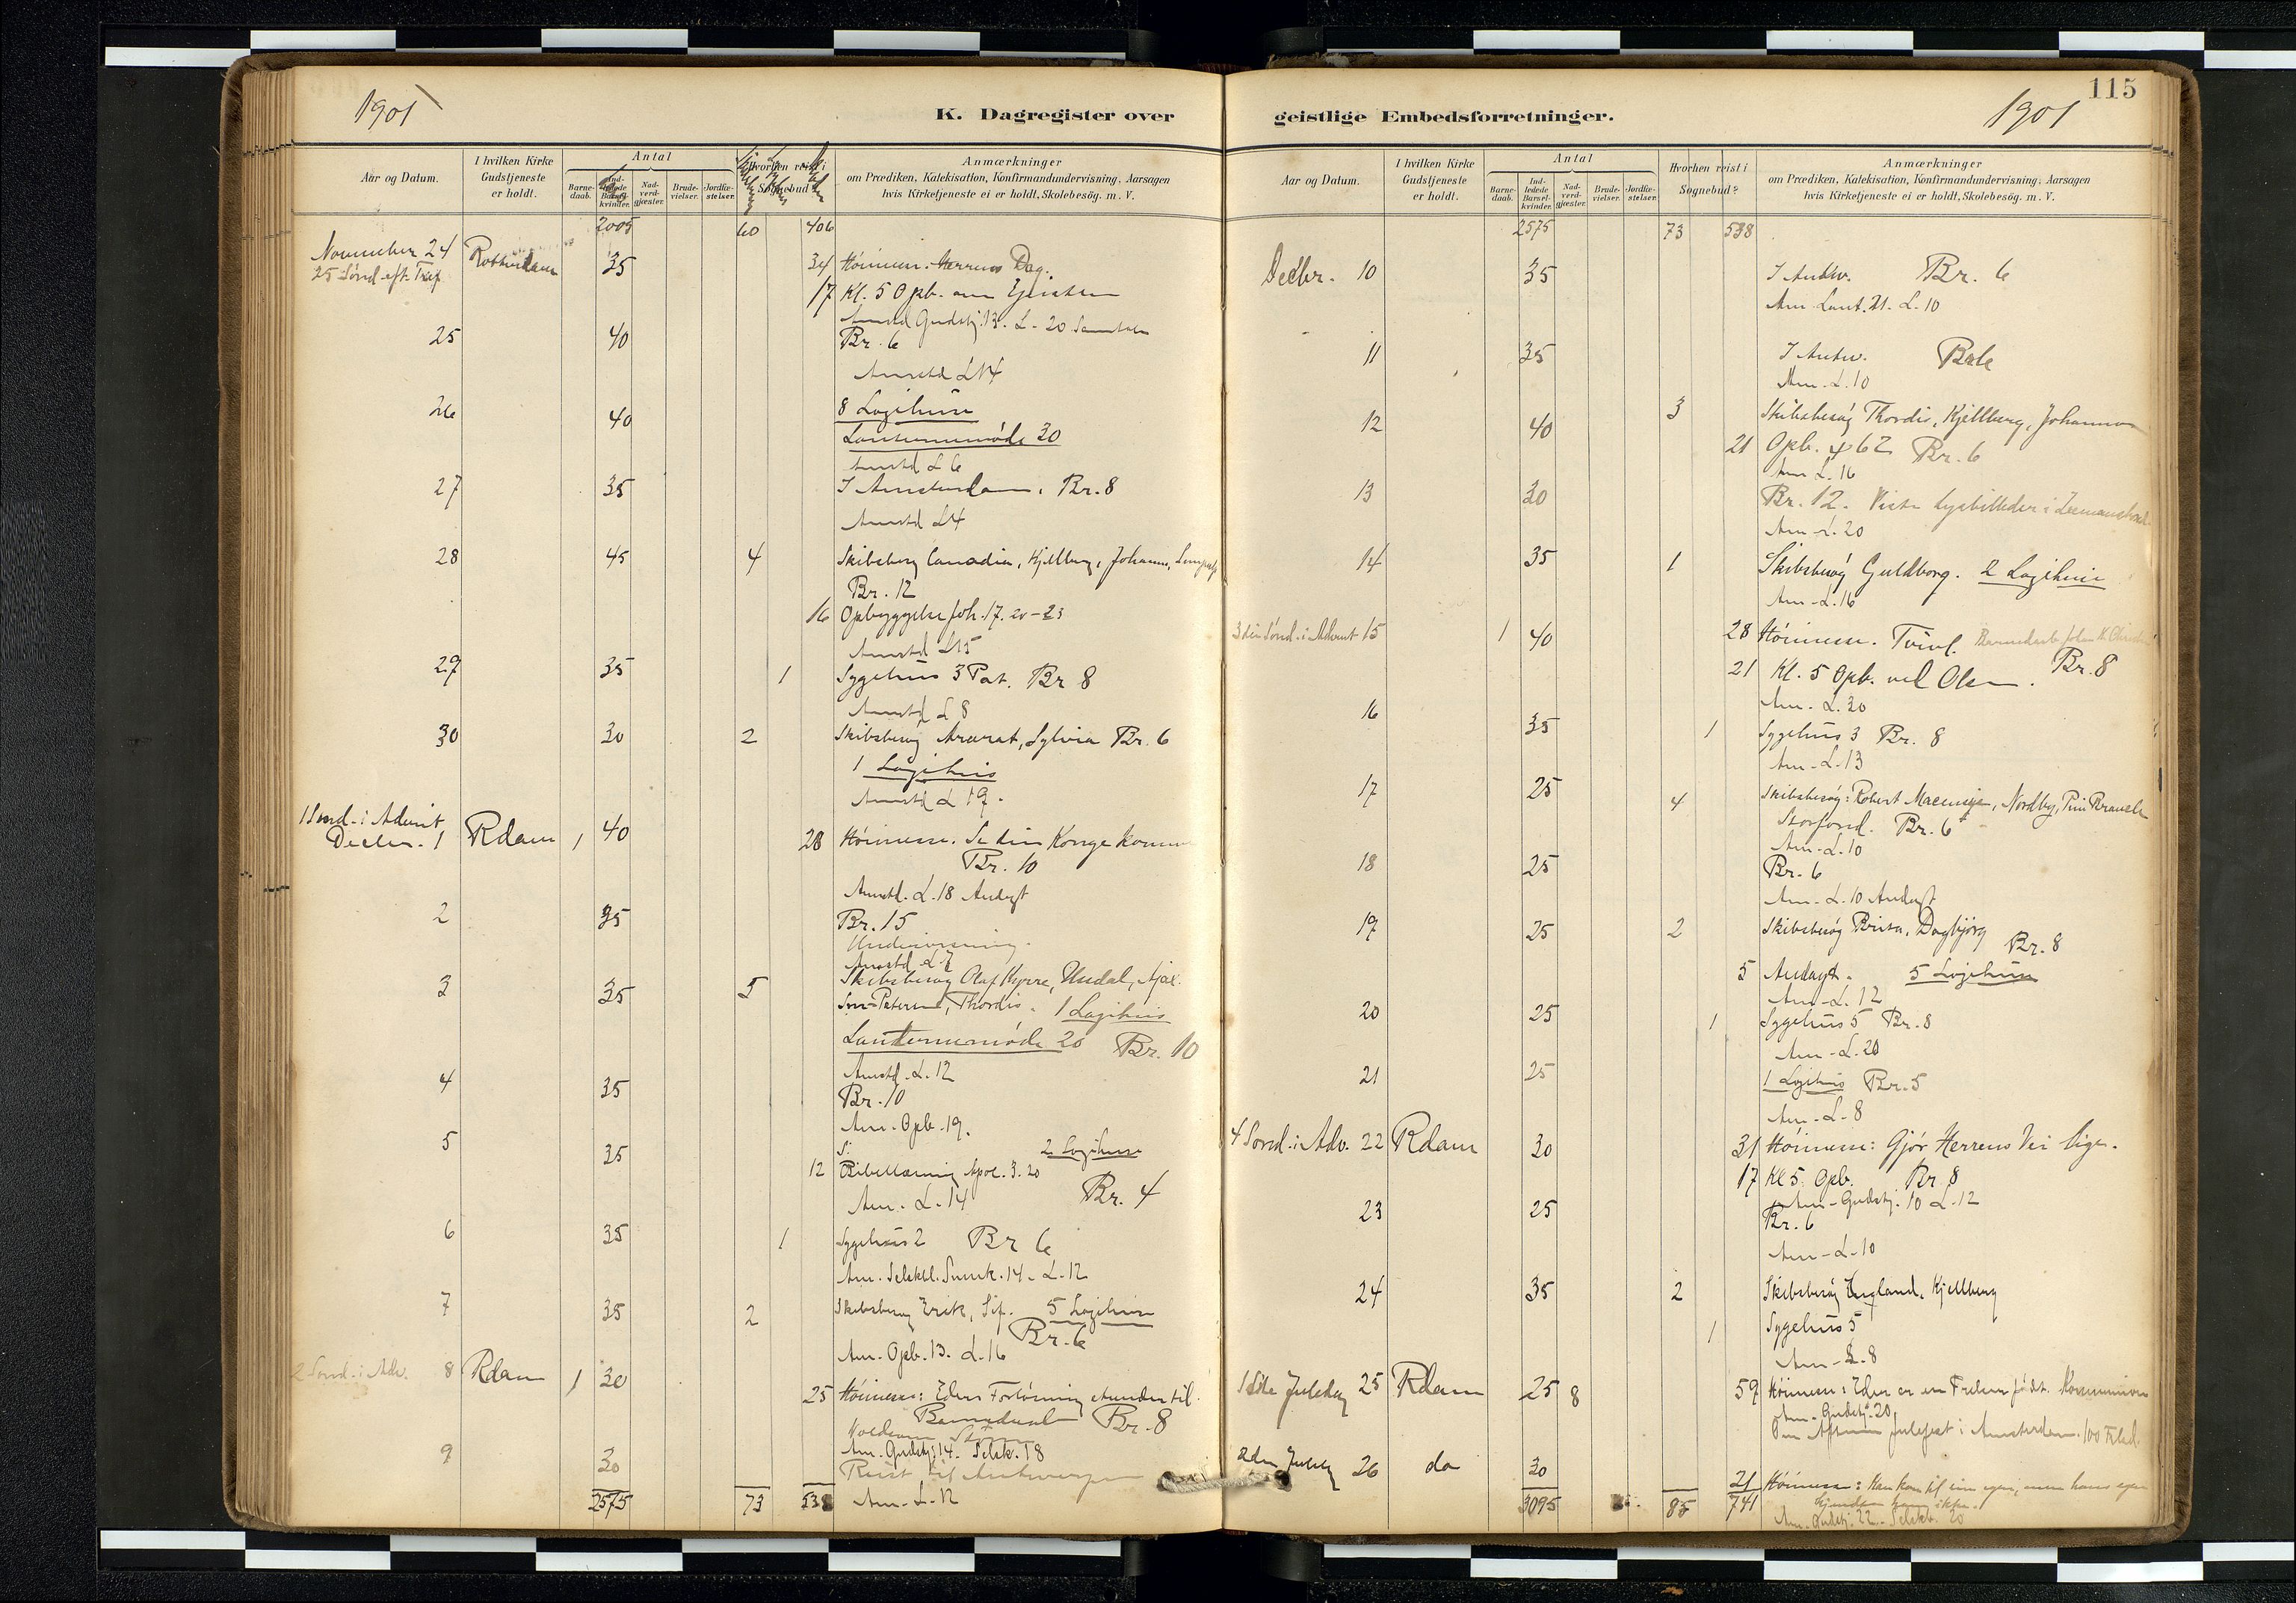 1901
K. Dagregister over
Aar og Datum.
I hvilken Kirke Gudstjeneste er holdt.
Antal
Barne-daab.
Ind-ledede Barsel-kvinder.
Nad-verd-gjæster.
Brude-vielser.
Jordfæ-stelser.
Hvorhen reist i Sognebud
Anmærkninger
om Prædiken, Katekisation, Konfirmandundervisning. Aarsagen
hvis Kirketjeneste ei er holdt, Skolebesög. m. V.
2005 60 406
November 24 Rotterdam 35 34 Høimesse. Herrens Dag.
25 Sønd. eft. Tref. 17 Kl. 5 Opb. om
Amstd Gudstj. 13. L. 20
25 40 Br. 6
Amstd L 14
26 40 8 Logihuse
Lanternemøde 30
Amstd L 6
27 35 I Amsterdam. Br. 8
Amstd L 4
28 45 4 Skibsbesøg Canadia, Kjellberg, Johanna,
Br. 12
16 Opbyggelse Joh. 17. 20-23
Amstd L 15
29 35 1 Sygehus 3 Pat. Br 8
Amstd L 8
30 30 2 Skibsbesøg Ararat, Sylvia Br. 6
1 Logihus
Amstd L 19.
1 Sønd. i Advent
Decbr. 1 Rdam 1 40 28 Høimesse. Se din Konge kommer
Br. 10
Amstd. L. 18 Andagt
2 35 Br. 15
Undervisning.
Amstd L 7
3 35 5 Skibsbesøg Olaf Kyrre, Undal, Ajax.
Thordis. 1 Logihus
Lanternemøde 20 Br. 10
Amstd. L. 12
4 35 Br. 10
Am. Opb. 19.
5 35 2 Logihuse
12 Bibellæsning Apoc. 3. 20
Am. L. 14 Br. 4
6 35 1 Sygehus 2 Br 6
Am. 14. L. 12
7 35 2 Skibsbesøg Erik, Sif. 5 Logihuse
Br. 6
Am. Opb. 13. L. 16
2 Sønd. i Adv. 8 Rdam 1 30
25 Høimesse: Eders Forløsning stunder til.
Barnedaab Br. 8
Am. Gudstj. 14. Selsk. 18
9 30 Reist til Antwerpen
2575 73 538 Am. L. 12
115
1901
geistlige Embedsforretninger.
Aar og Datum.
I hvilken Kirke Gudstjeneste er holdt.
Antal
Barne-daab.
Ind-ledede Barsel-kvinder.
Nad-verd-gjæster.
Brude-vielser.
Jordfæ-stelser.
Hvorhen reist i Sognebud?
Anmærkninger
om Prædiken, Katekisation, Konfirmandundervisning. Aarsagen
hvis Kirketjeneste ei er holdt, Skolebesög. m. V.
2575 73 538
Decbr. 10 35 I Antw. Br. 6
Am. Lant. 21. L. 10
11 35 I Antw.
Am. L. 10
12 40 3 Skibsbesøg Thordis, Kjellberg, Johanna
21 Opb. 62 Br. 6
Am L. 16
13 30 Br. 12. Viste Lysbilleder i
Am. L. 20
14 35 1 Skibsbesøg Guldborg. 2 Logihuse
Am. L. 16
3die Sønd. i Advent 15 1 40 28 Høimesse. Tvivl. Barnedaab
21 Kl. 5 Opb. ved Olsen. Br. 8
Am. L. 30
16 35 1 Sygehus 3 Br. 8
Am. L. 13
17 25 4 Skibsbesøg: Robert Nordby,
Storfond. Br. 6
Am. L. 10
18 25 Br. 6
Am. L. 10 Andagt
19 25 2 Skibsbesøg Brisa, Dagbjørg
Br. 8
5 Andagt. 5 Logihuse
Am. L. 12
20 25 1 Sygehus 5 Br. 8
Am. L. 20
21 25 1 Logihus Br. 5
Am. L. 8
4 Sønd. i Adv. 22 Rdam 30 31 Høimesse: Gjør Herrens Vei lige.
17 Kl 5. Opb. Br 8
Am. Gudstj. 10 L. 12
23 25 Br. 6
Am. L. 10
24 35 2 Skibsbesøg England, Kjellberg
1 Sygehus 5
Am. L. 8
1ste Juledag 25 Rdam 25 8 59 Høimesse: Eder er en Frelser født. Kommunion
Am. Gudstj. 20
Om Aftenen Julefest i Amsterdam. 100
2den Juledag 26 do 30
21 Høimesse: Han kom til sine egne, men hans egne
kjendte ham ikke.
3095 85 741
Am. Gudstj. 22. Selsk. 20